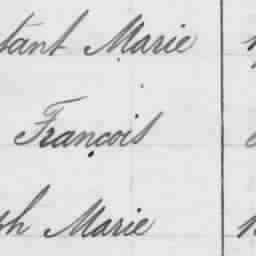 tant Marie
François
ph Marie